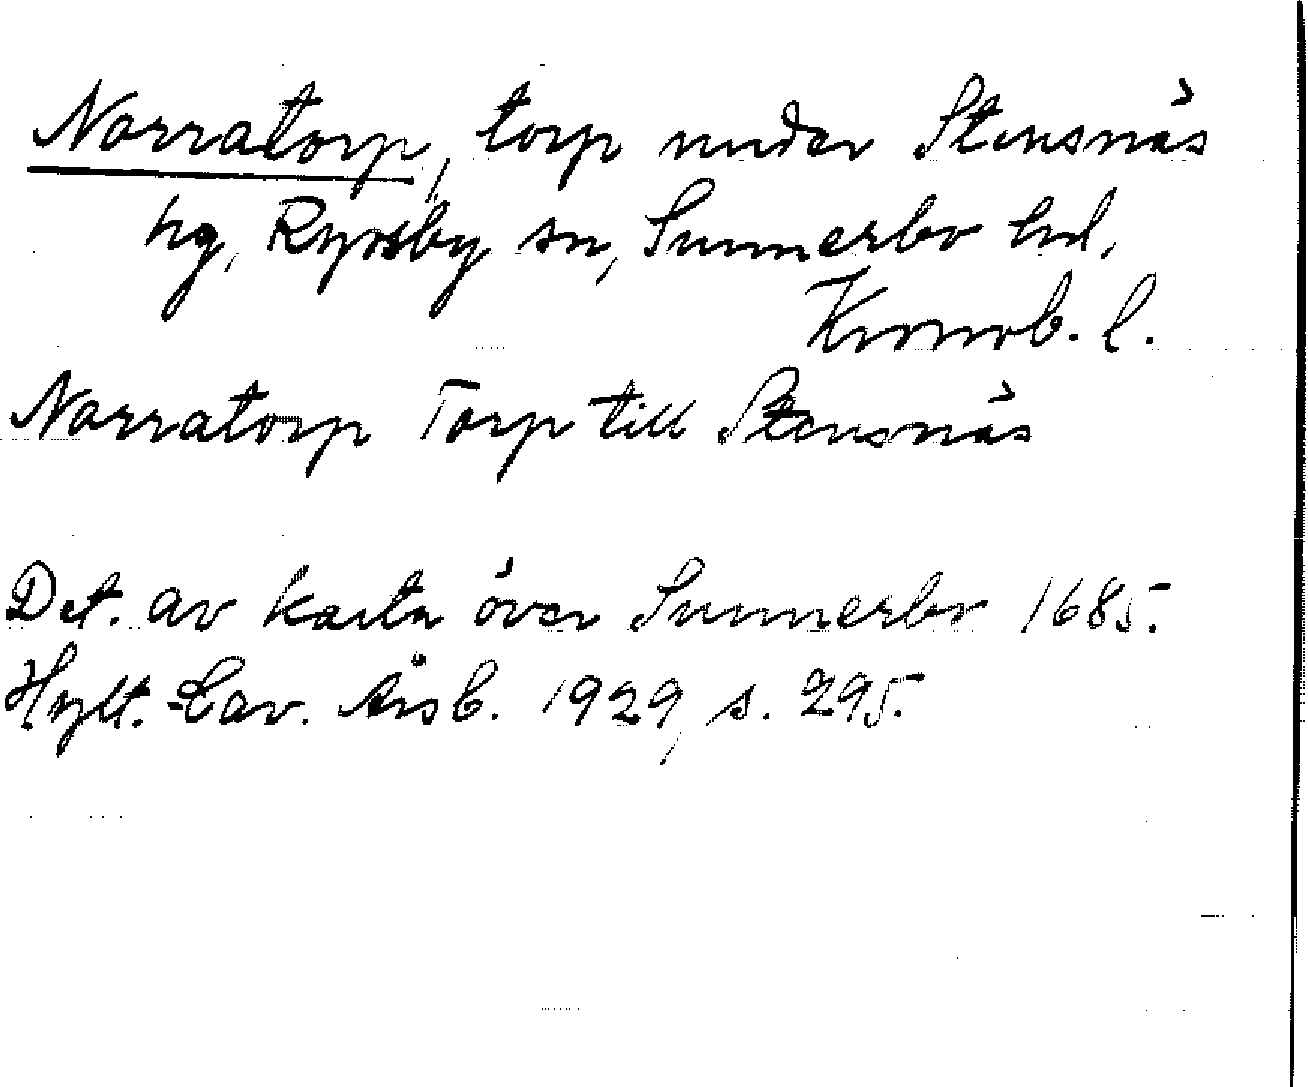 Norratorp, torp under Stensnäs
hg, Ryssby sn, Sunnerbo hd,
Kronob. l.
Norratorp Torp till Stensnäs
Det. av karta över Sunnerbo 1685.
Hylt.-Cav. Årsb. 1929, s. 295.